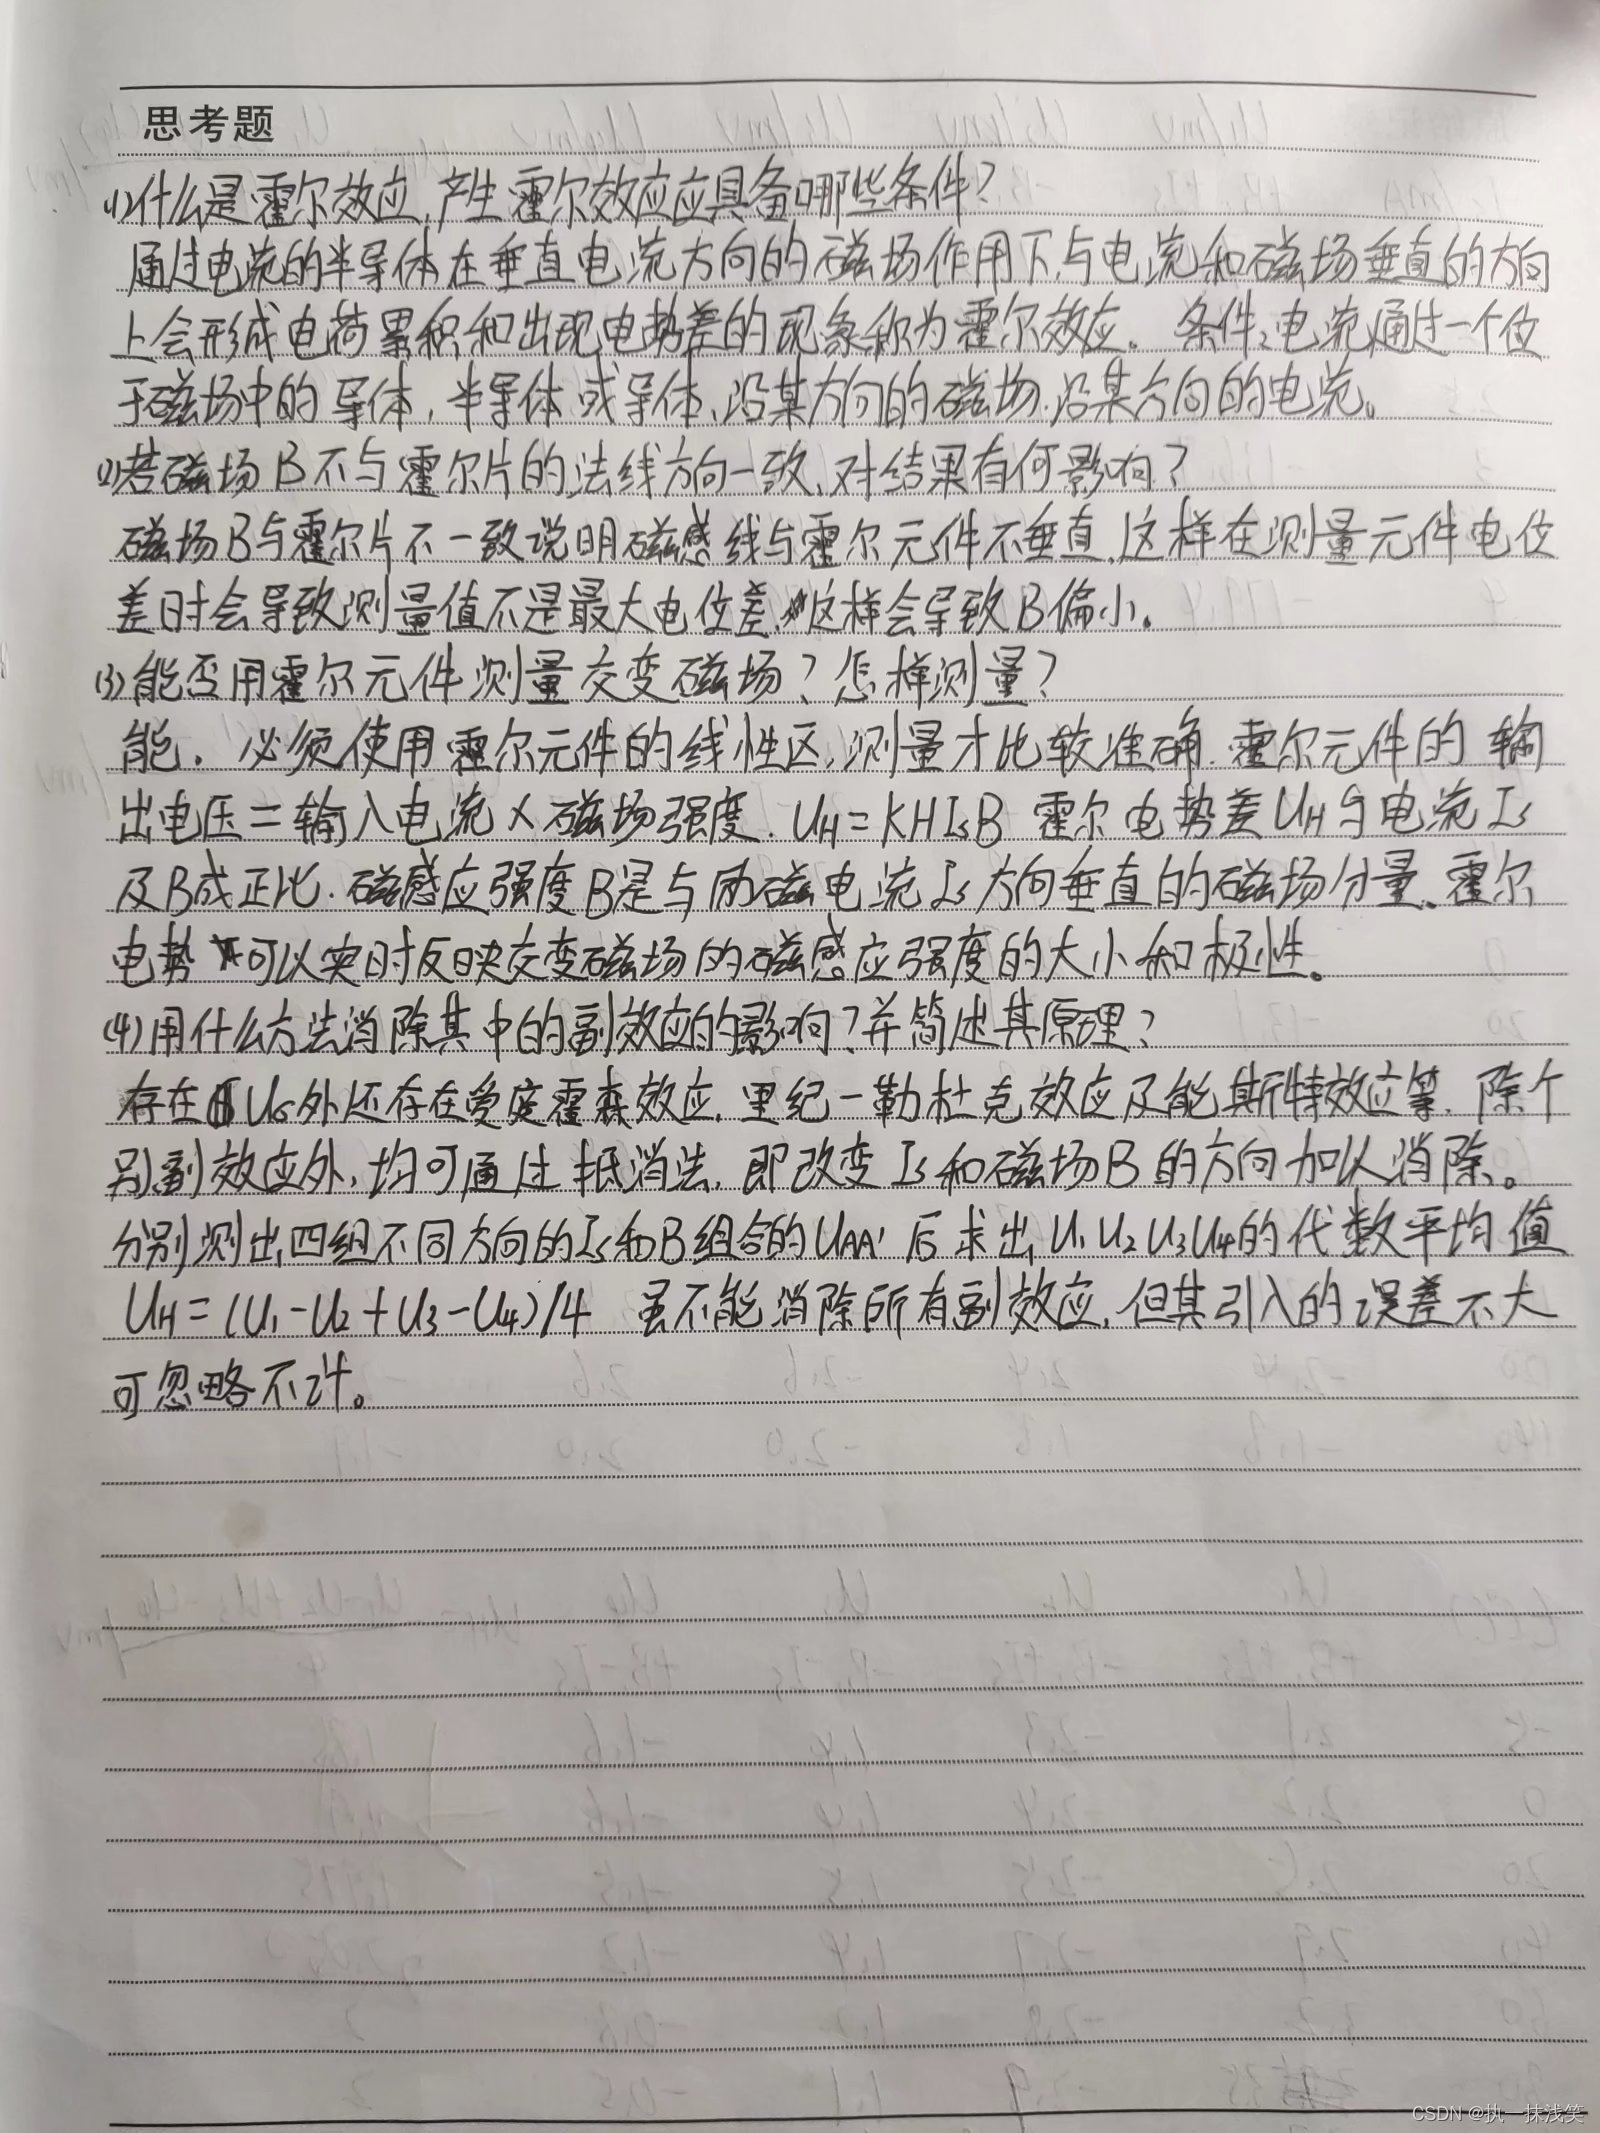 思考题
(1)什么是霍尔效应,产生霍尔效应应具备哪些条件?
通过电流的半导体在垂直电流方向的磁场作用下,与电流和磁场垂直的方向
上会形成电荷累积和出现电势差的现象称为霍尔效应。条件:电流通过一个位
于磁场中的导体,半导体或导体、沿某方向的磁场、沿某方向的电流。
(2)若磁场B不与霍尔片的法线方向一致,对结果有何影响?
磁场B与霍尔片不一致说明磁感线与霍尔元件不垂直,这样在测量元件电位
差时会导致测量值不是最大电位差,这样会导致B偏小。
(3)能否用霍尔元件测量交变磁场?怎样测量?
能.必须使用霍尔元件的线性区,测量才比较准确.霍尔元件的输
出电压=输入电流×磁场强度.UH=KHIsB 霍尔电势差UH与电流Is
及B成正比.磁感应强度B是与励磁电流Is方向垂直的磁场分量、霍尔
电势可以实时反映交变磁场的磁感应强度的大小和极性。
(4)用什么方法消除其中的副效应的影响?并简述其原理?
存在U外还存在爱廷霍森效应,里纪-勒杜克效应及能斯特效应等.除个
别副效应外,均可通过抵消法,即改变Is和磁场B的方向加以消除。
分别测出四组不同方向的Is和B组合的UAA'后求出U1U2U3U4的代数平均值
UH=(U1-U2+U3-U4)/4 虽不能消除所有副效应,但其引入的误差不大
可忽略不计。
CSDN @执一抹浅笑